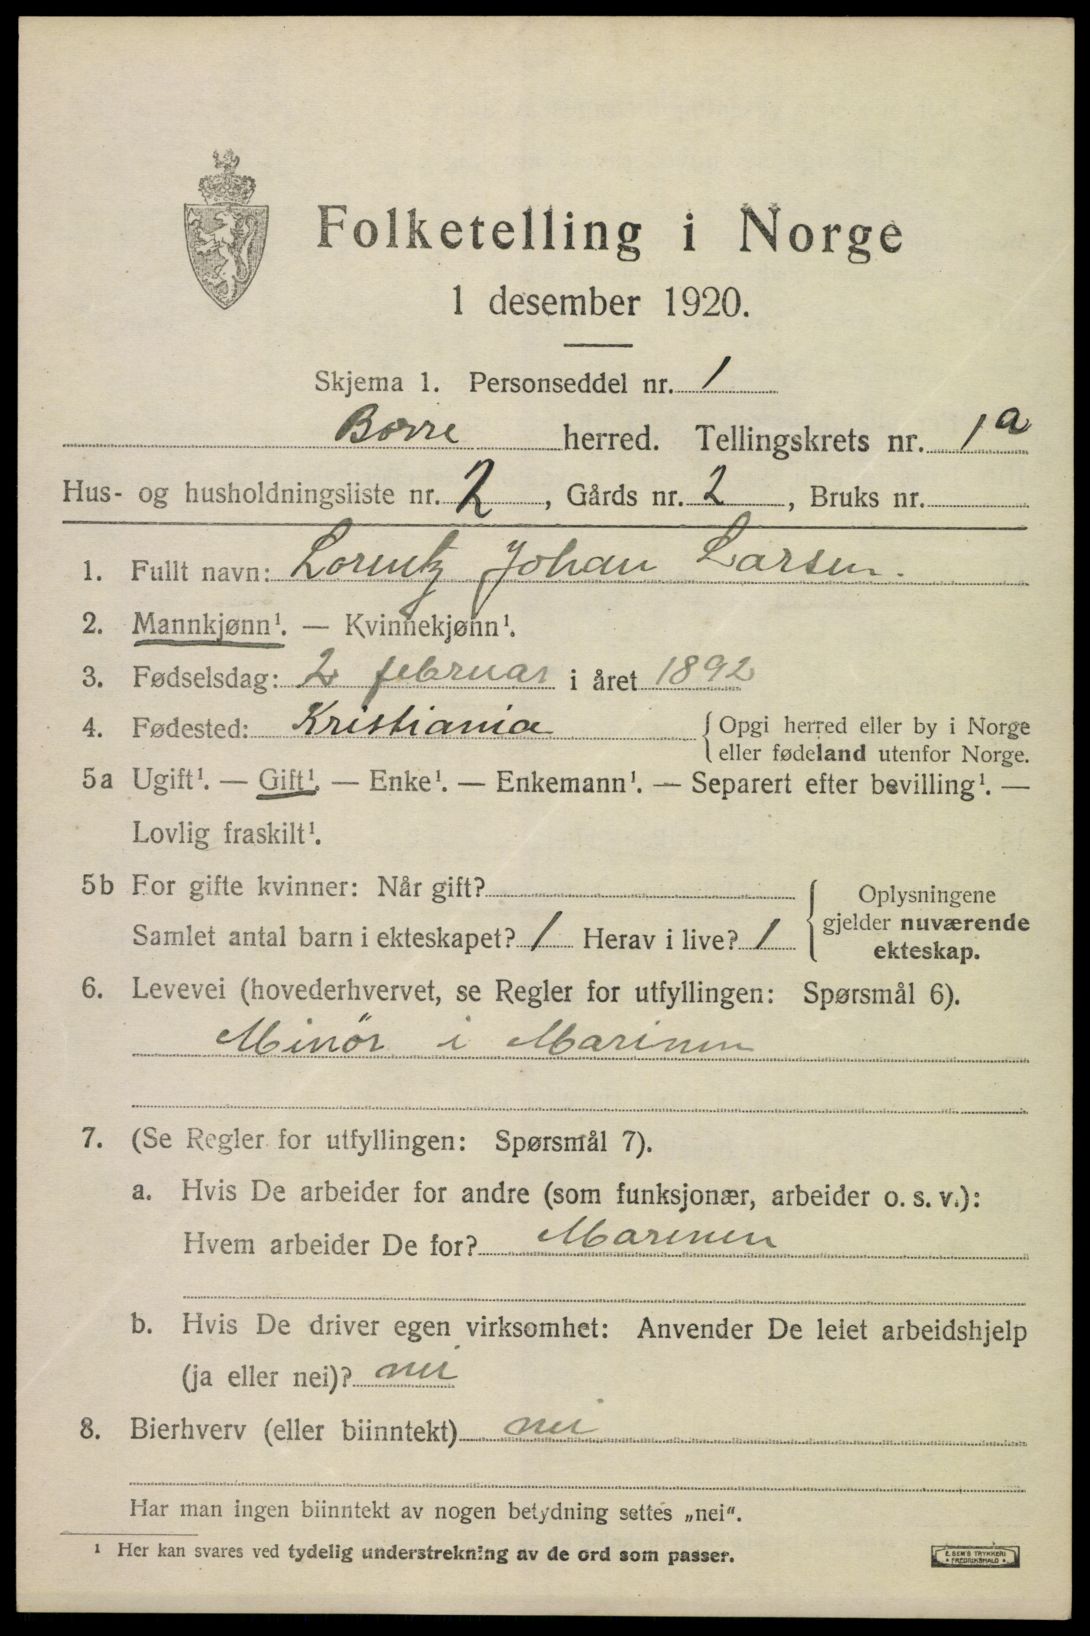 Folketelling i Norge
1 desember 1920.
Skjema 1. Personseddel nr. 1
Borre herred. Tellingskrets nr. 1a
Hus- og husholdningsliste nr. 2, Gårds nr. 2, Bruks nr.
1. Fullt navn: Lorentz Johan Larsen.
2. Mannkjønn¹. — Kvinnekjønn¹.
3. Fødselsdag: 2 februar i året 1892
4. Fødested: Kristiania { Opgi herred eller by i Norge
eller fødeland utenfor Norge.
5a Ugift¹. — Gift¹. — Enke¹. — Enkemann¹. — Separert efter bevilling¹. —
Lovlig fraskilt¹.
5b For gifte kvinner: Når gift? { Oplysningene
gjelder nuværende
Samlet antal barn i ekteskapet? 1 Herav i live? 1 ekteskap.
6. Levevei (hovederhvervet, se Regler for utfyllingen: Spørsmål 6).
Minör i Marinen
7. (Se Regler for utfyllingen: Spørsmål 7).
a. Hvis De arbeider for andre (som funksjonær, arbeider o. s. v.):
Hvem arbeider De for? Marinen
b. Hvis De driver egen virksomhet: Anvender De leiet arbeidshjelp
(ja eller nei)? nei
8. Bierhverv (eller biinntekt) nei
Har man ingen biinntekt av nogen betydning settes „nei".
¹ Her kan svares ved tydelig understrekning av de ord som passer.
E. SEM'S TRYKKERI
• FREDRIKSHALD •